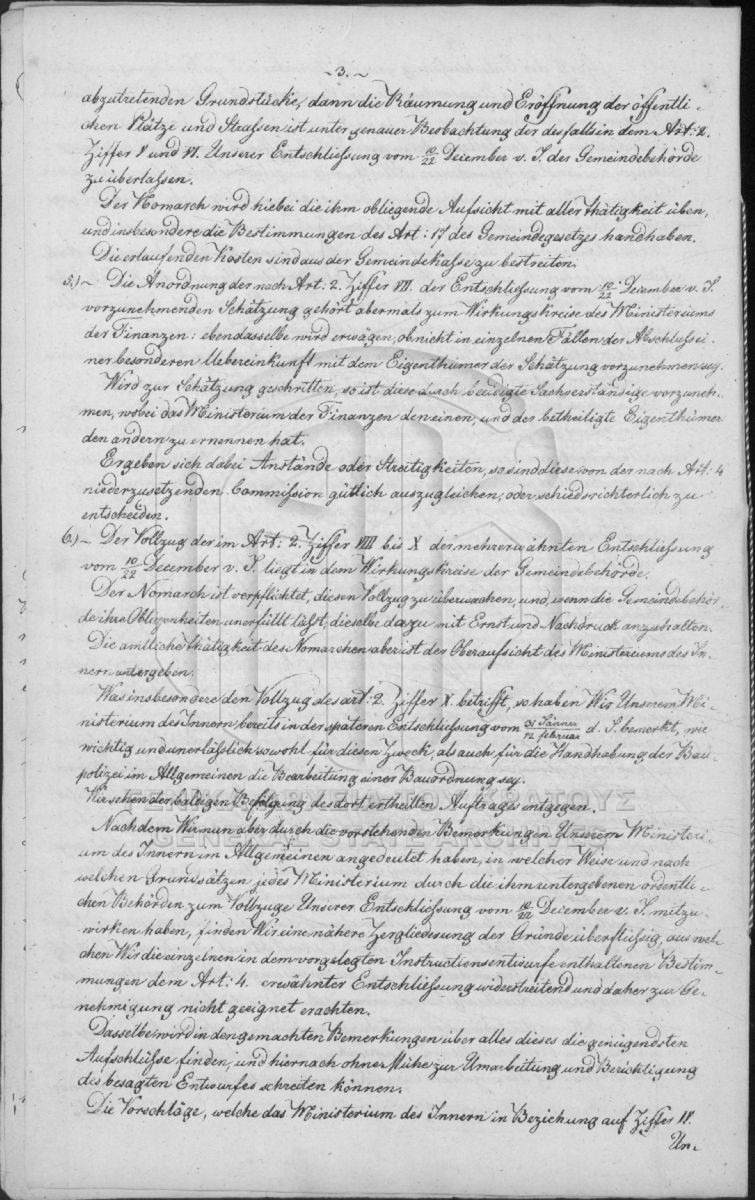 ~ 3. ~
abzutretenden Grundstücke, dann die Räumung und Eröffnung der öffentli-
chen Plätze und Strassen ist unter genauer Beobachtung der desfalls in dem Art: 2.
Ziffer V und VI. Unserer Entschliessung vom 10/22 December v. J. der Gemeindebehörde
zu überlassen.
Der Nomarch wird hiebei die ihm obliegende Aufsicht mit aller Thätigkeit üben,
und insbesondere die Bestimmungen des Art: 17 des Gemeindegesetzes handhaben.
Die erlaufenden Kosten sind aus der Gemeindekasse zu bestreiten.
5.) ~ Die Anordnung der nach Art: 2. Ziffer VII. der Entschliessung vom 10/22 December v. J.
vorzunehmenden Schätzung gehört abermals zum Wirkungskreise des Ministeriums
der Finanzen: ebendasselbe wird erwägen, ob nicht in einzelnen Fällen der Abschluss ei-
ner besonderen Uebereinkunft mit dem Eigenthümer der Schätzung vorzunehmen sey.
Wird zur Schätzung geschritten, so ist diese durch beeidigte Sachverständige vorzuneh-
men, wobei das Ministerium der Finanzen den einen, und der betheiligte Eigenthümer
den andern zu ernennen hat.
Ergeben sich dabei Anstände oder Streitigkeiten, so sind diese von der nach Art. 4
niederzusetzenden Commission gütlich auszugleichen, oder schiedsrichterlich zu
entscheiden.
6.) ~ Der Vollzug der im Art: 2. Ziffer VIII bis X der mehrerwähnten Entschliessung
vom 10/22 December v. J. liegt in dem Wirkungskreise der Gemeindebehörde.
Der Nomarch ist verpflichtet, diesen Vollzug zu überwachen, und, wenn die Gemeindebehör-
de ihre Obliegenheiten unerfüllt lässt, dieselbe dazu mit Ernst und Nachdruck anzuhalten.
Die amtliche Thätigkeit des Nomarchen aber ist der Oberaufsicht des Ministeriums des In-
nern untergeben.
Was insbesondere den Vollzug des art: 2. Ziffer X. betrifft, so haben Wir Unserem Mi-
nisterium des Innern, bereits in der späteren Entschliessung vom 31 Jänner/12 februar d. J. bemerkt, wie
wichtig und unerlässlich sowohl für diesen Zweck, als auch für die Handhabung der Bau-
polizei im Allgemeinen die Bearbeitung einer Bauordnung sey.
Wir sehen der baldigen Befolgung des dort ertheilten Auftrages entgegen.
ΓΕΝΙΚΑ ΑΡΧΕΙΑ ΤΟΥ ΚΡΑΤΟΥΣ
GENERAL STATE ARCHIVES
Nachdem Wir nun aber durch die vorstehenden Bemerkungen Unserem Ministeri-
um des Innern im Allgemeinen angedeutet haben, in welcher Weise und nach
welchen Grundsätzen jedes Ministerium durch die ihm untergebenen ordentli-
chen Behörden zum Vollzuge Unserer Entschliessung vom 10/22 December v. J. mitzu-
wirken haben, finden Wir eine nähere Zergliederung der Gründe überflüssig, aus wel-
chen Wir die einzelnen in dem vorgelegten Instructionsentwurfe enthaltenen Bestim-
mungen dem Art: 4. erwähnter Entschliessung widerstreitend und daher zur Ge-
nehmigung nicht geeignet erachten.
Dasselbe wird in den gemachten Bemerkungen über alles dieses die genügendsten
Aufschlüsse finden, und hiernach ohne Mühe zur Umarbeitung und Berichtigung
des besagten Entwurfes schreiten können.
Die Vorschläge, welche das Ministerium des Innern in Beziehung auf Ziffer IV.
Un-